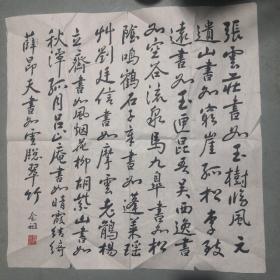 張雲莊書如玉樹臨風元
遺山書如窮崖孤松李致
遠書如玉匣昆吾吴西逸書
如空谷流泉馬九皋書如松
陰鳴鶴石子章書如蓬萊瑤
草劉廷信書如摩雲老鶻楊
立齋書如風烟花柳胡紫山書如
秋潭孤月吕止庵書如晴霞結綺
薛昂夫書如雪牕翠竹